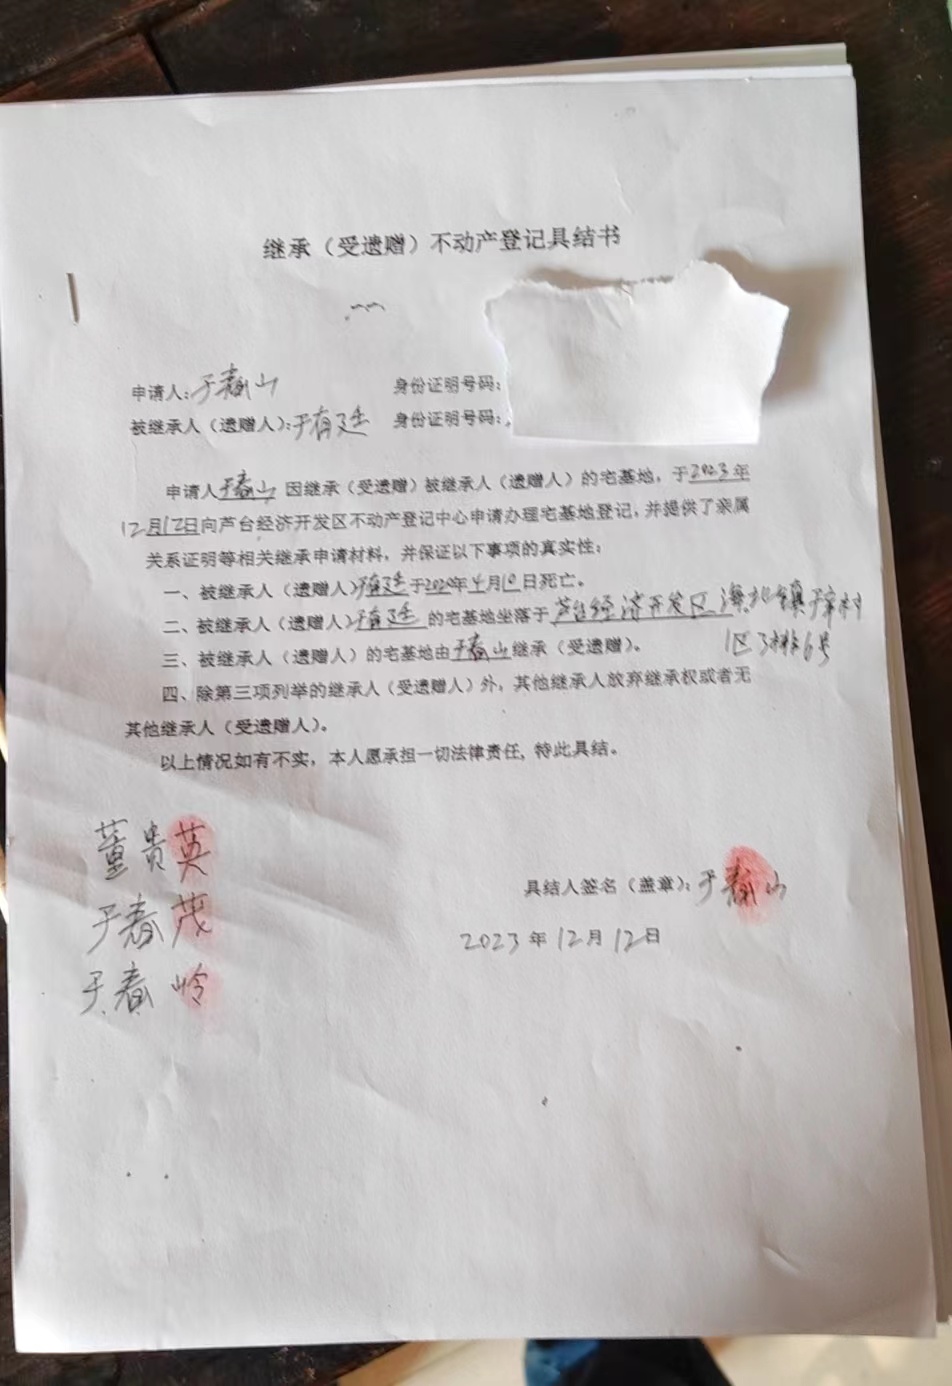 继承（受遗赠）不动产登记具结书
申请人：于春山 身份证明号码：
被继承人（遗赠人）：于有廷 身份证明号码：
申请人于春山因继承（受遗赠）被继承人（遗赠人）的宅基地，于2023年
12月12日向芦台经济开发区不动产登记中心申请办理宅基地登记，并提供了亲属
关系证明等相关继承申请材料，并保证以下事项的真实性：
一、被继承人（遗赠人）于有廷于2020年4月10日死亡。
二、被继承人（遗赠人）于有廷的宅基地坐落于芦台经济开发区海北镇于家村
1区3排6号
三、被继承人（遗赠人）的宅基地由于春山继承（受遗赠）。
四、除第三项列举的继承人（受遗赠人）外，其他继承人放弃继承权或者无
其他继承人（受遗赠人）。
以上情况如有不实，本人愿承担一切法律责任，特此具结。
董贵英
于春茂
于春岭
具结人签名（盖章）：于春山
2023年12月12日